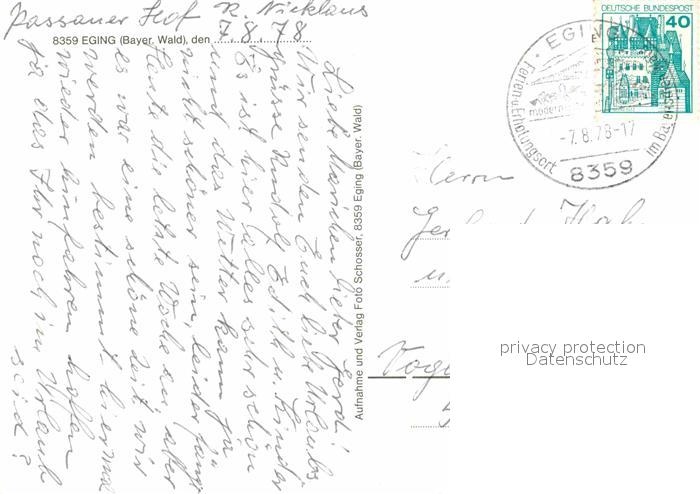 Passauer Hof R. Nicklaus
8359 EGING (Bayer. Wald), den 7.8.78
Liebe Mariechen lieber Ferdi
Wir senden Euch liebe Urlaubs
grüsse Rudolf Edith u. Kinder
Es ist hier alles sehr schön
und das Wetter kann ja
nicht schöner sein, leider fängt
heute die letzte Woche an, aber
es war eine schöne Zeit wir
werden bestimmt hier mal
wieder hinfahren hoffen
ja das Ihr noch im Urlaub
seid?
Aufnahme und Verlag Foto Schosser, 8359 Eging (Bayer. Wald)
DEUTSCHE BUNDESPOST
40
EGING
Ferien u Erholungsort
im Bayer
modern
-7.8.78-17
8359
Herrn
privacy protection
Datenschutz